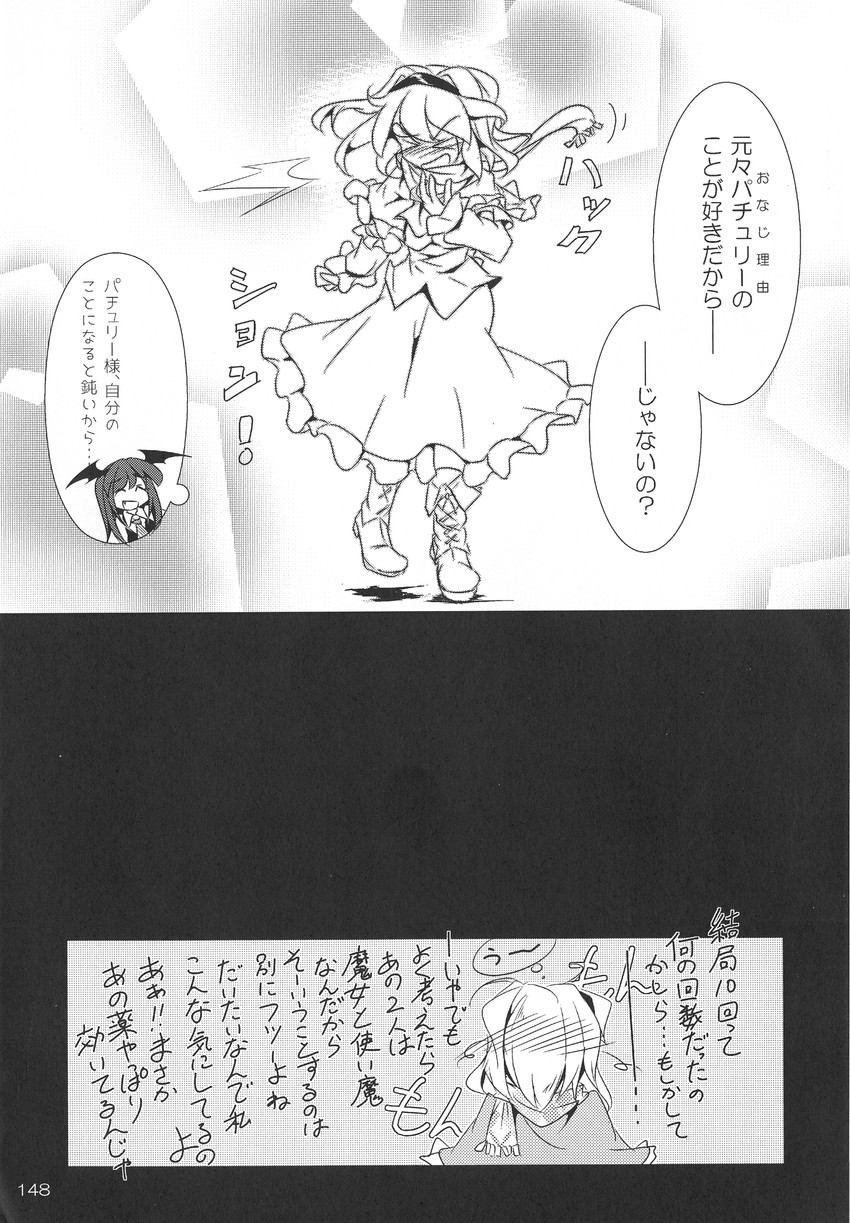 元々パチュリーの
おなじ理由
ことが好きだから――
――じゃないの?
ハック
ション!
パチュリー様、自分の
ことになると鈍いから…
結局10回って
何の回数だったの
かしら…もしかして
……
もん
うー
もん
ーいやでも
よく考えたら
あの2人は
魔女と使い魔
なんだから
そーいうことするのは
別にフツーよね
だいたいなんで私
こんな気にしてるの
よ
ああ!!まさか
あの薬やっぱり
効いてるんじゃ
148